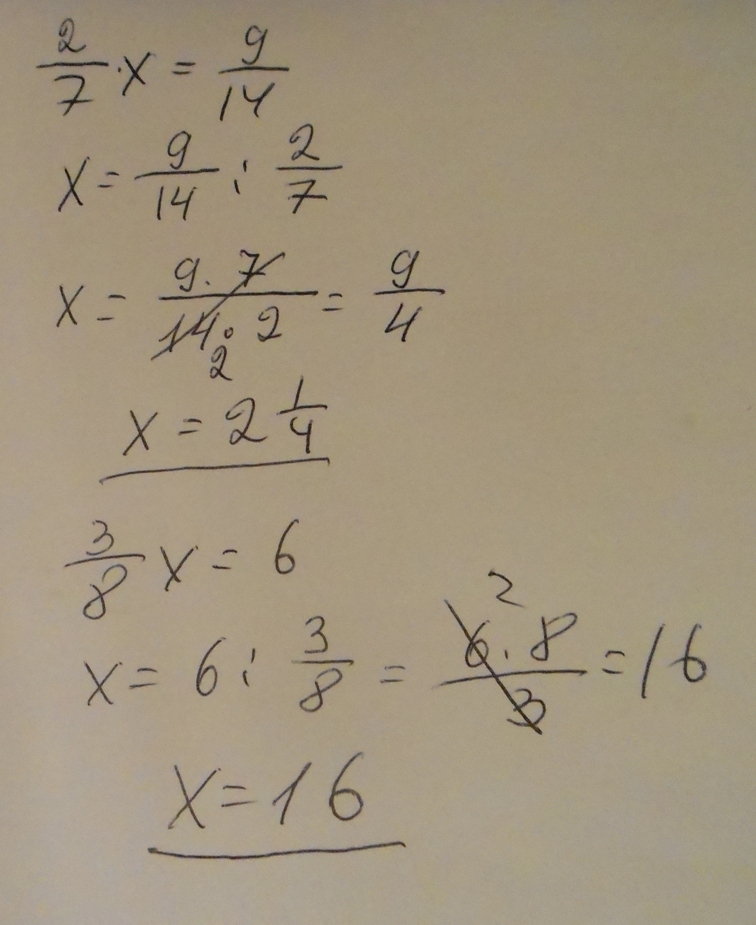 2/7 · x = 9/14
x = 9/14 : 2/7
x = 9 · 7 / 14 · 2 = 9/4
2
x = 2 1/4
3/8 x = 6
2
x = 6 : 3/8 = 6 · 8 / 3 = 16
x = 16